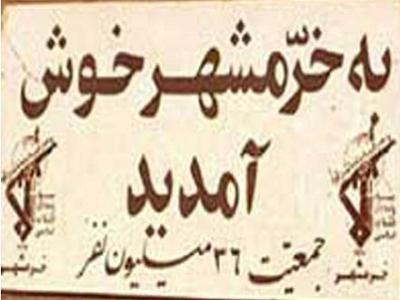 به خرّمشهر خوش
آمدید
جمعیّت ۳۶ میلیون نفر
خرمشهر
خرمشهر